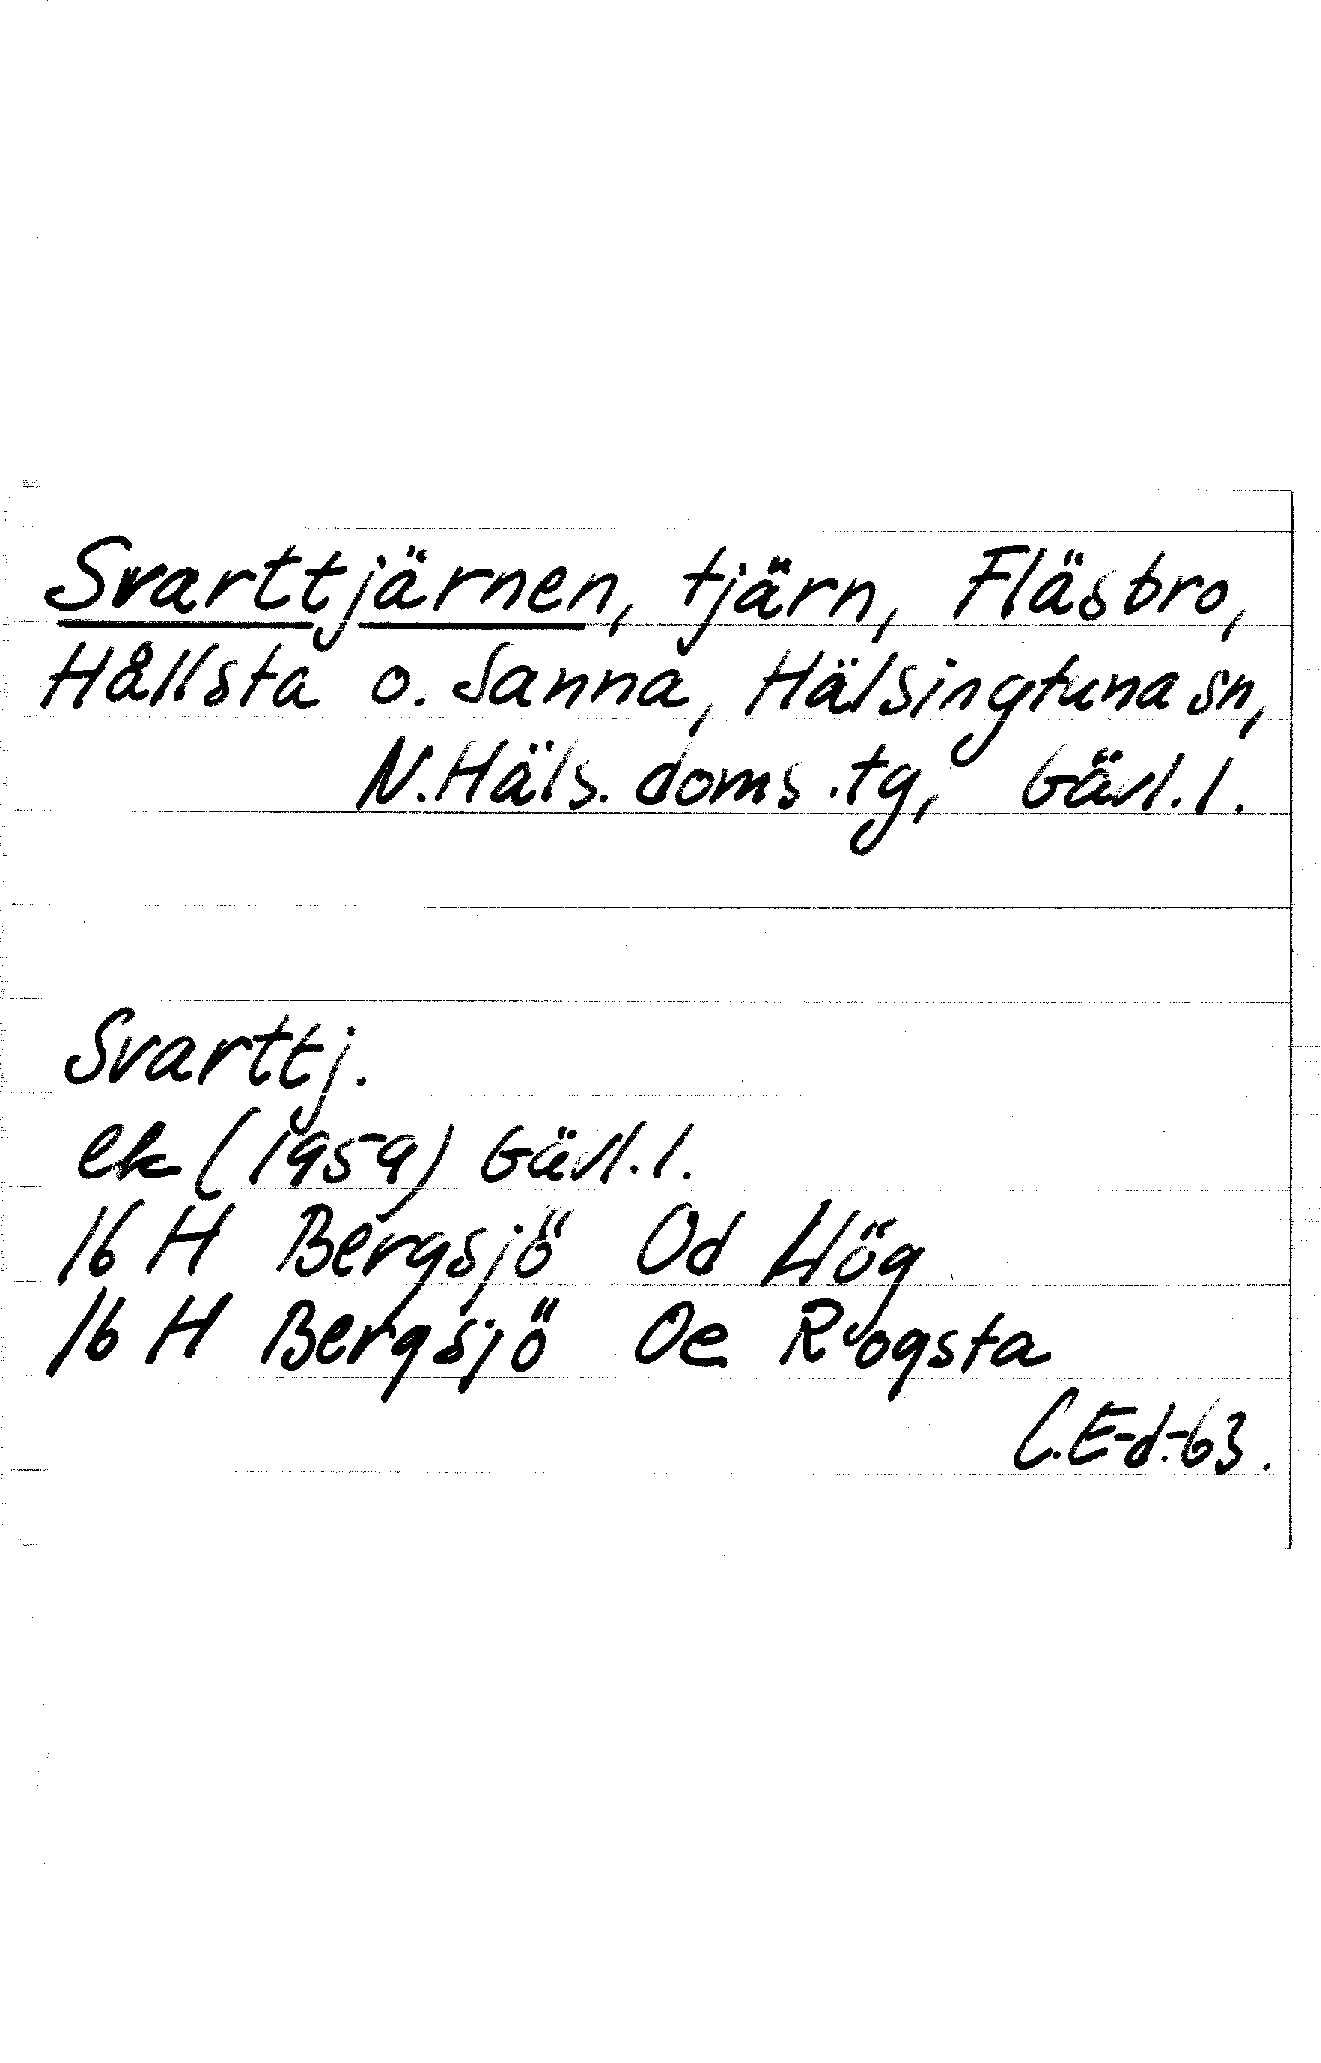 Svarttjärnen, tjärn, Fläsbro,
Hållsta o. Sanna, Hälsingtuna sn,
N. Häls. doms.tg, Gävl.l.
Svarttj.
ek (1959) Gävl.l.
16 H Bergsjö Od Hög
16 H Bergsjö Oe Rogsta
C.E-d.-63.